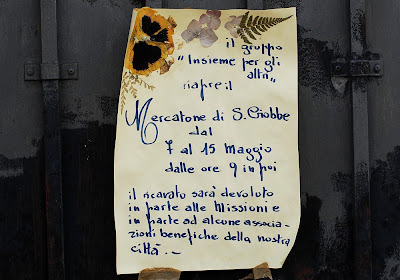 il gruppo
"Insieme per gli
altri"
riapre il
Mercatone di S. Giobbe
dal
7 al 15 Maggio
dalle ore 9 in poi
il ricavato sarà devoluto
in parte alle Missioni e
in parte ad alcune associa-
zioni benefiche della nostra
città.-